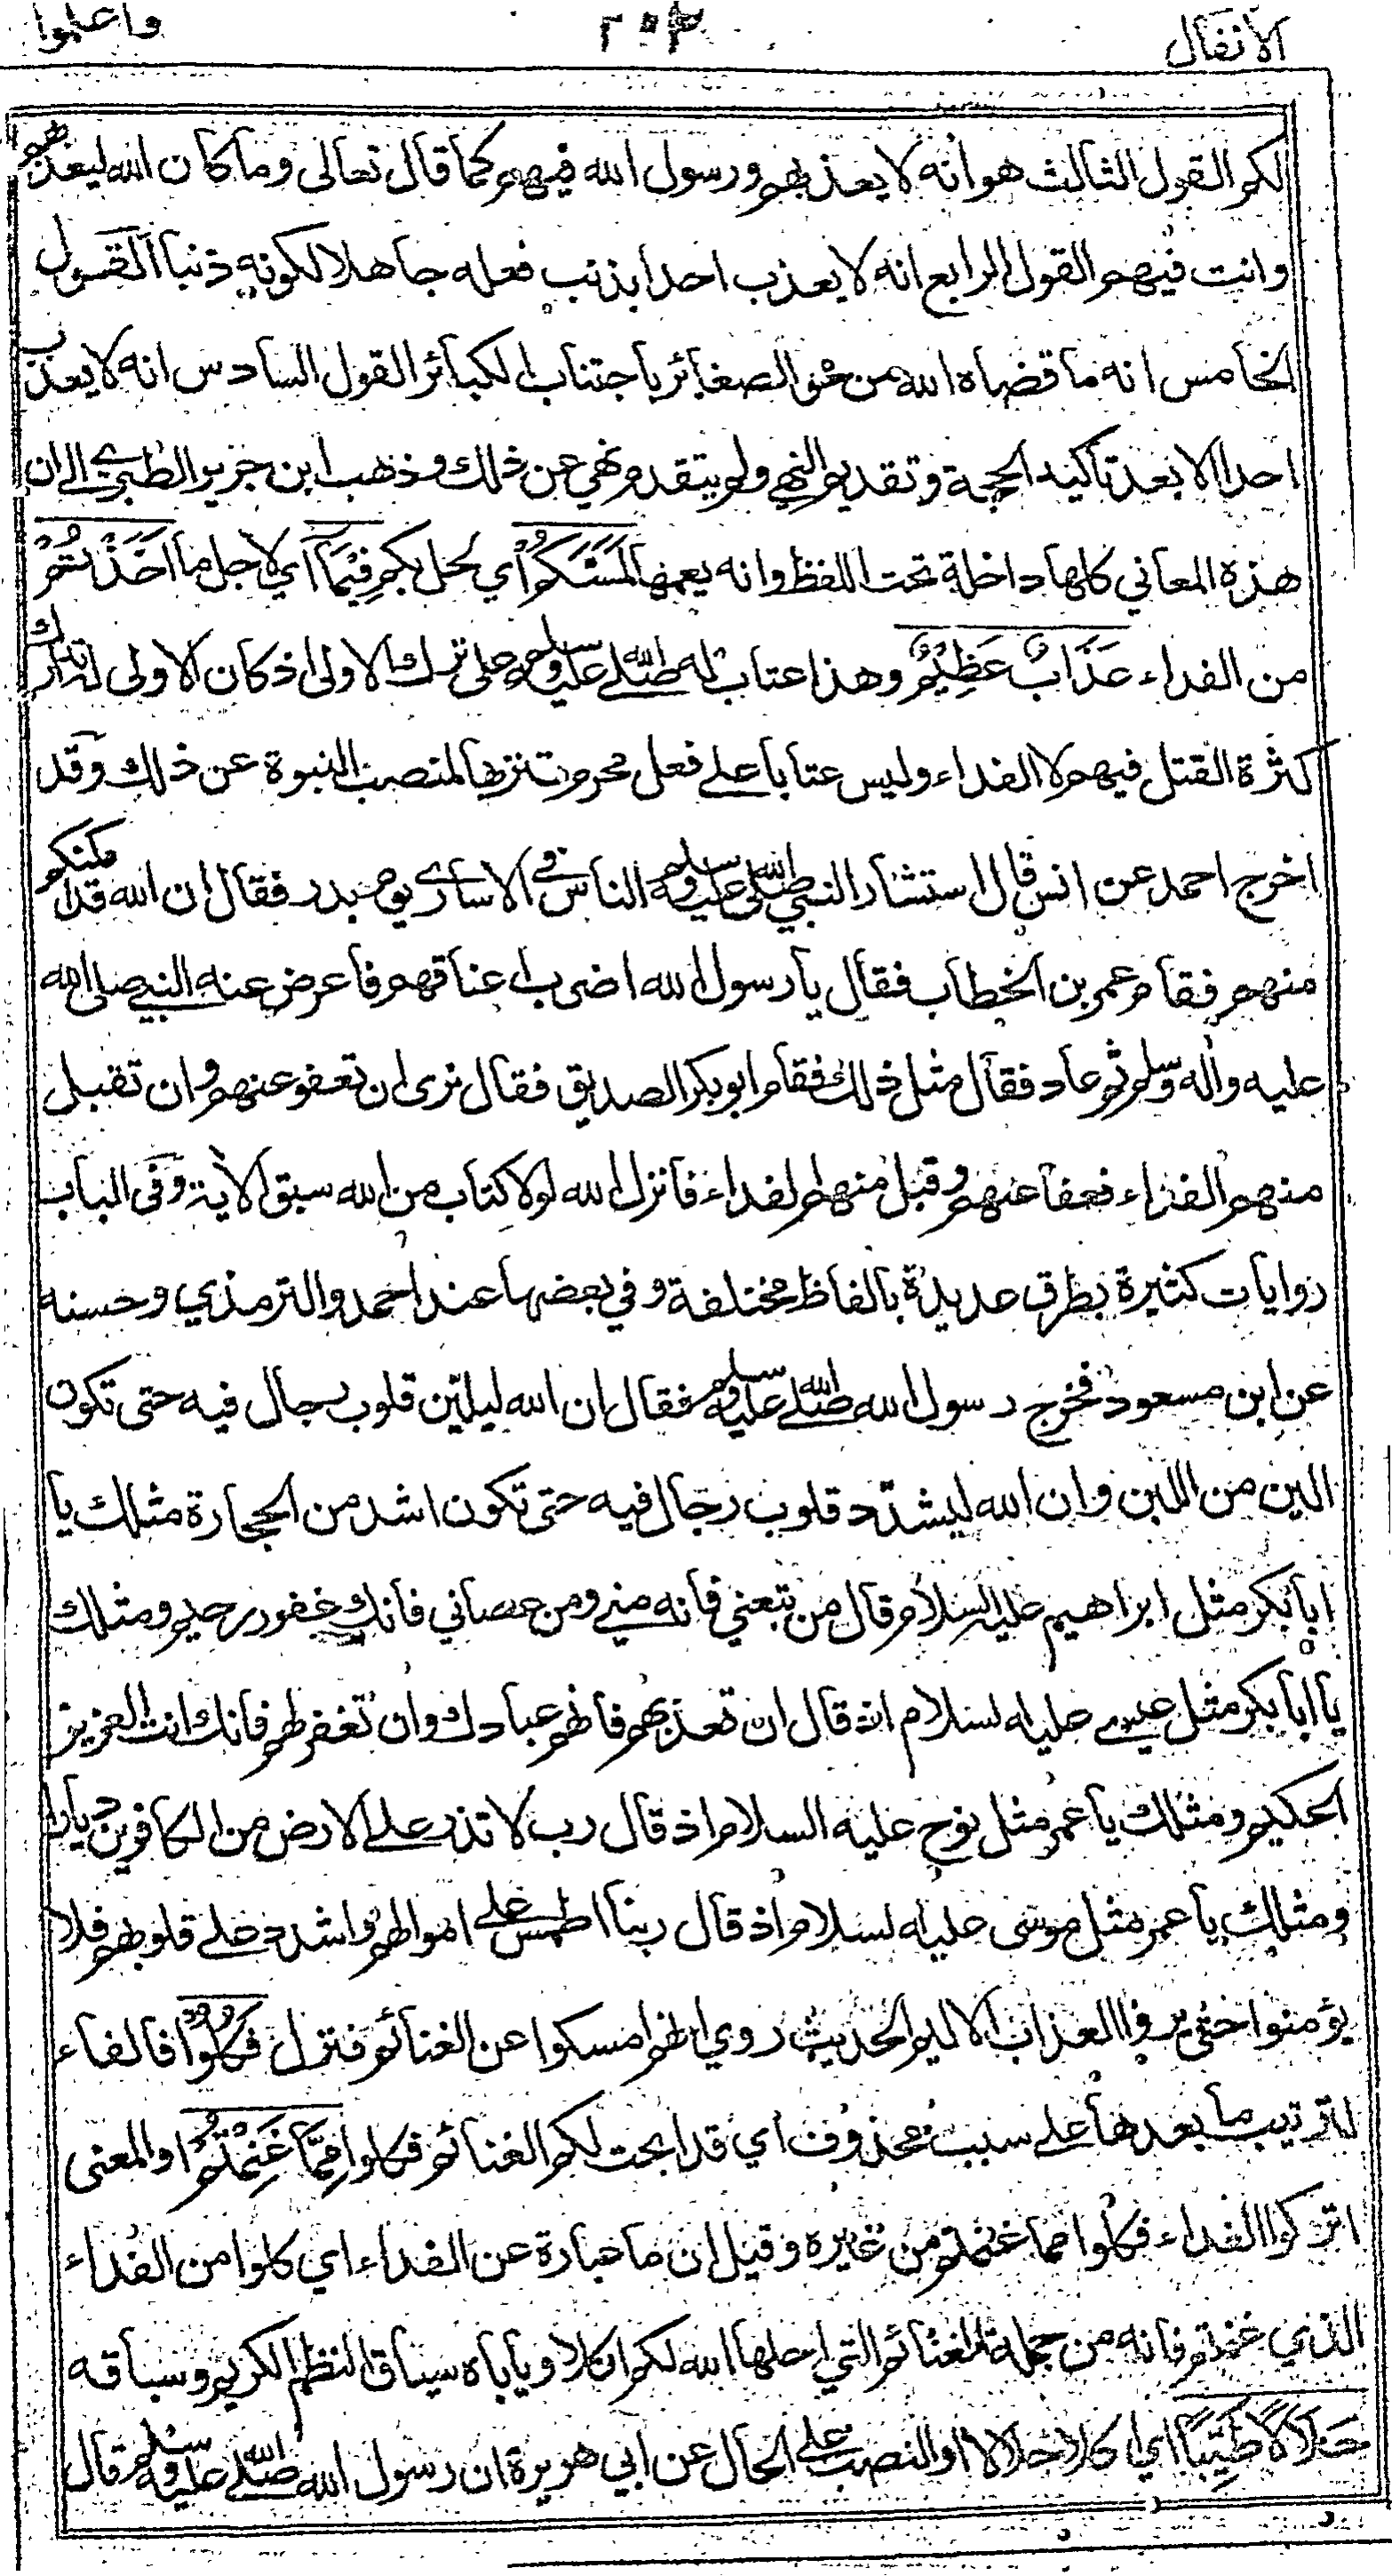 الانفال ٢٠٣ واعلموا
لكم القول الثالث هو انه لا يعذبهم ورسول الله فيهم كما قال تعالى وما كان الله ليعذبهم
وانت فيهم القول الرابع انه لا يعذب احدا بذنب فعله جاهلا لكونه ذنبا القول
الخامس انه ما قضاه الله من محق الصغائر باجتناب الكبائر القول السادس انه لا يعذب
احدا الا بعد تاكيد الحجة وتقديم النهي ولم يتقدم نهي عن ذلك وذهب ابن جرير الطبري الى ان
هذه المعاني كلها داخلة تحت اللفظ وانه يعمها لَمَسَّكُمْ اي لحل بكم فِيْمَا اي لاجل ما اَخَذْتُمْ
من الفداء عَذَابٌ عَظِيْمٌ وهذا عتاب له صلى الله عليه وسلم على ترك الاولى اذ كان الاولى له تدارك
كثرة القتل فيهم لا الفداء وليس عتابا على فعل محرم تنزيها لمنصب النبوة عن ذلك وقد
اخرج احمد عن انس قال استشار النبي صلى الله عليه وسلم الناس في الاسارى يوم بدر فقال ان الله قد امكنكم
منهم فقام عمر بن الخطاب فقال يا رسول الله اضرب اعناقهم فاعرض عنه النبي صلى الله
عليه واله وسلم ثم عاد فقال مثل ذلك فقام ابو بكر الصديق فقال نرى ان تعفو عنهم وان تقبل
منهم الفداء فعفا عنهم وقبل منهم الفداء فانزل الله لولا كتاب من الله سبق الاية وفي الباب
روايات كثيرة بطرق عديدة بالفاظ مختلفة وفي بعضها عند احمد والترمذي وحسنه
عن ابن مسعود فخرج رسول الله صلى الله عليه وسلم فقال ان الله ليلين قلوب رجال فيه حتى تكون
الين من اللبن وان الله ليشدد قلوب رجال فيه حتى تكون اشد من الحجارة مثلك يا
ابا بكر مثل ابراهيم عليه السلام قال من تبعني فانه مني ومن عصاني فانك غفور رحيم ومثلك
يا ابا بكر مثل عيسى عليه السلام اذ قال ان تعذبهم فانهم عبادك وان تغفر لهم فانك انت العزيز
الحكيم ومثلك يا عمر مثل نوح عليه السلام اذ قال رب لا تذر على الارض من الكافرين ديارا
ومثلك يا عمر مثل موسى عليه السلام اذ قال ربنا اطمس على اموالهم واشدد على قلوبهم فلا
يؤمنوا حتى يروا العذاب الاليم الحديث روي انهم امسكوا عن الغنائم فنزل فَكُلُوْا فالفاء
لترتيب ما بعدها على سبب محذوف اي قد ابحت لكم الغنائم فكلوا مِمَّا غَنِمْتُمْ او المعنى
اتركوا الفداء فكلوا مما غنمتم من غيره وقيل ان ما عبارة عن الفداء اي كلوا من الفداء
الذي غنمتم فانه من جملة الغنائم التي احلها الله لكم اكلا وياباه سياق النظم الكريم وسباقه
حَلَالًا طَيِّبًا اي اكلا حلالا او النصب على الحال عن ابي هريرة ان رسول الله صلى الله عليه وسلم قال